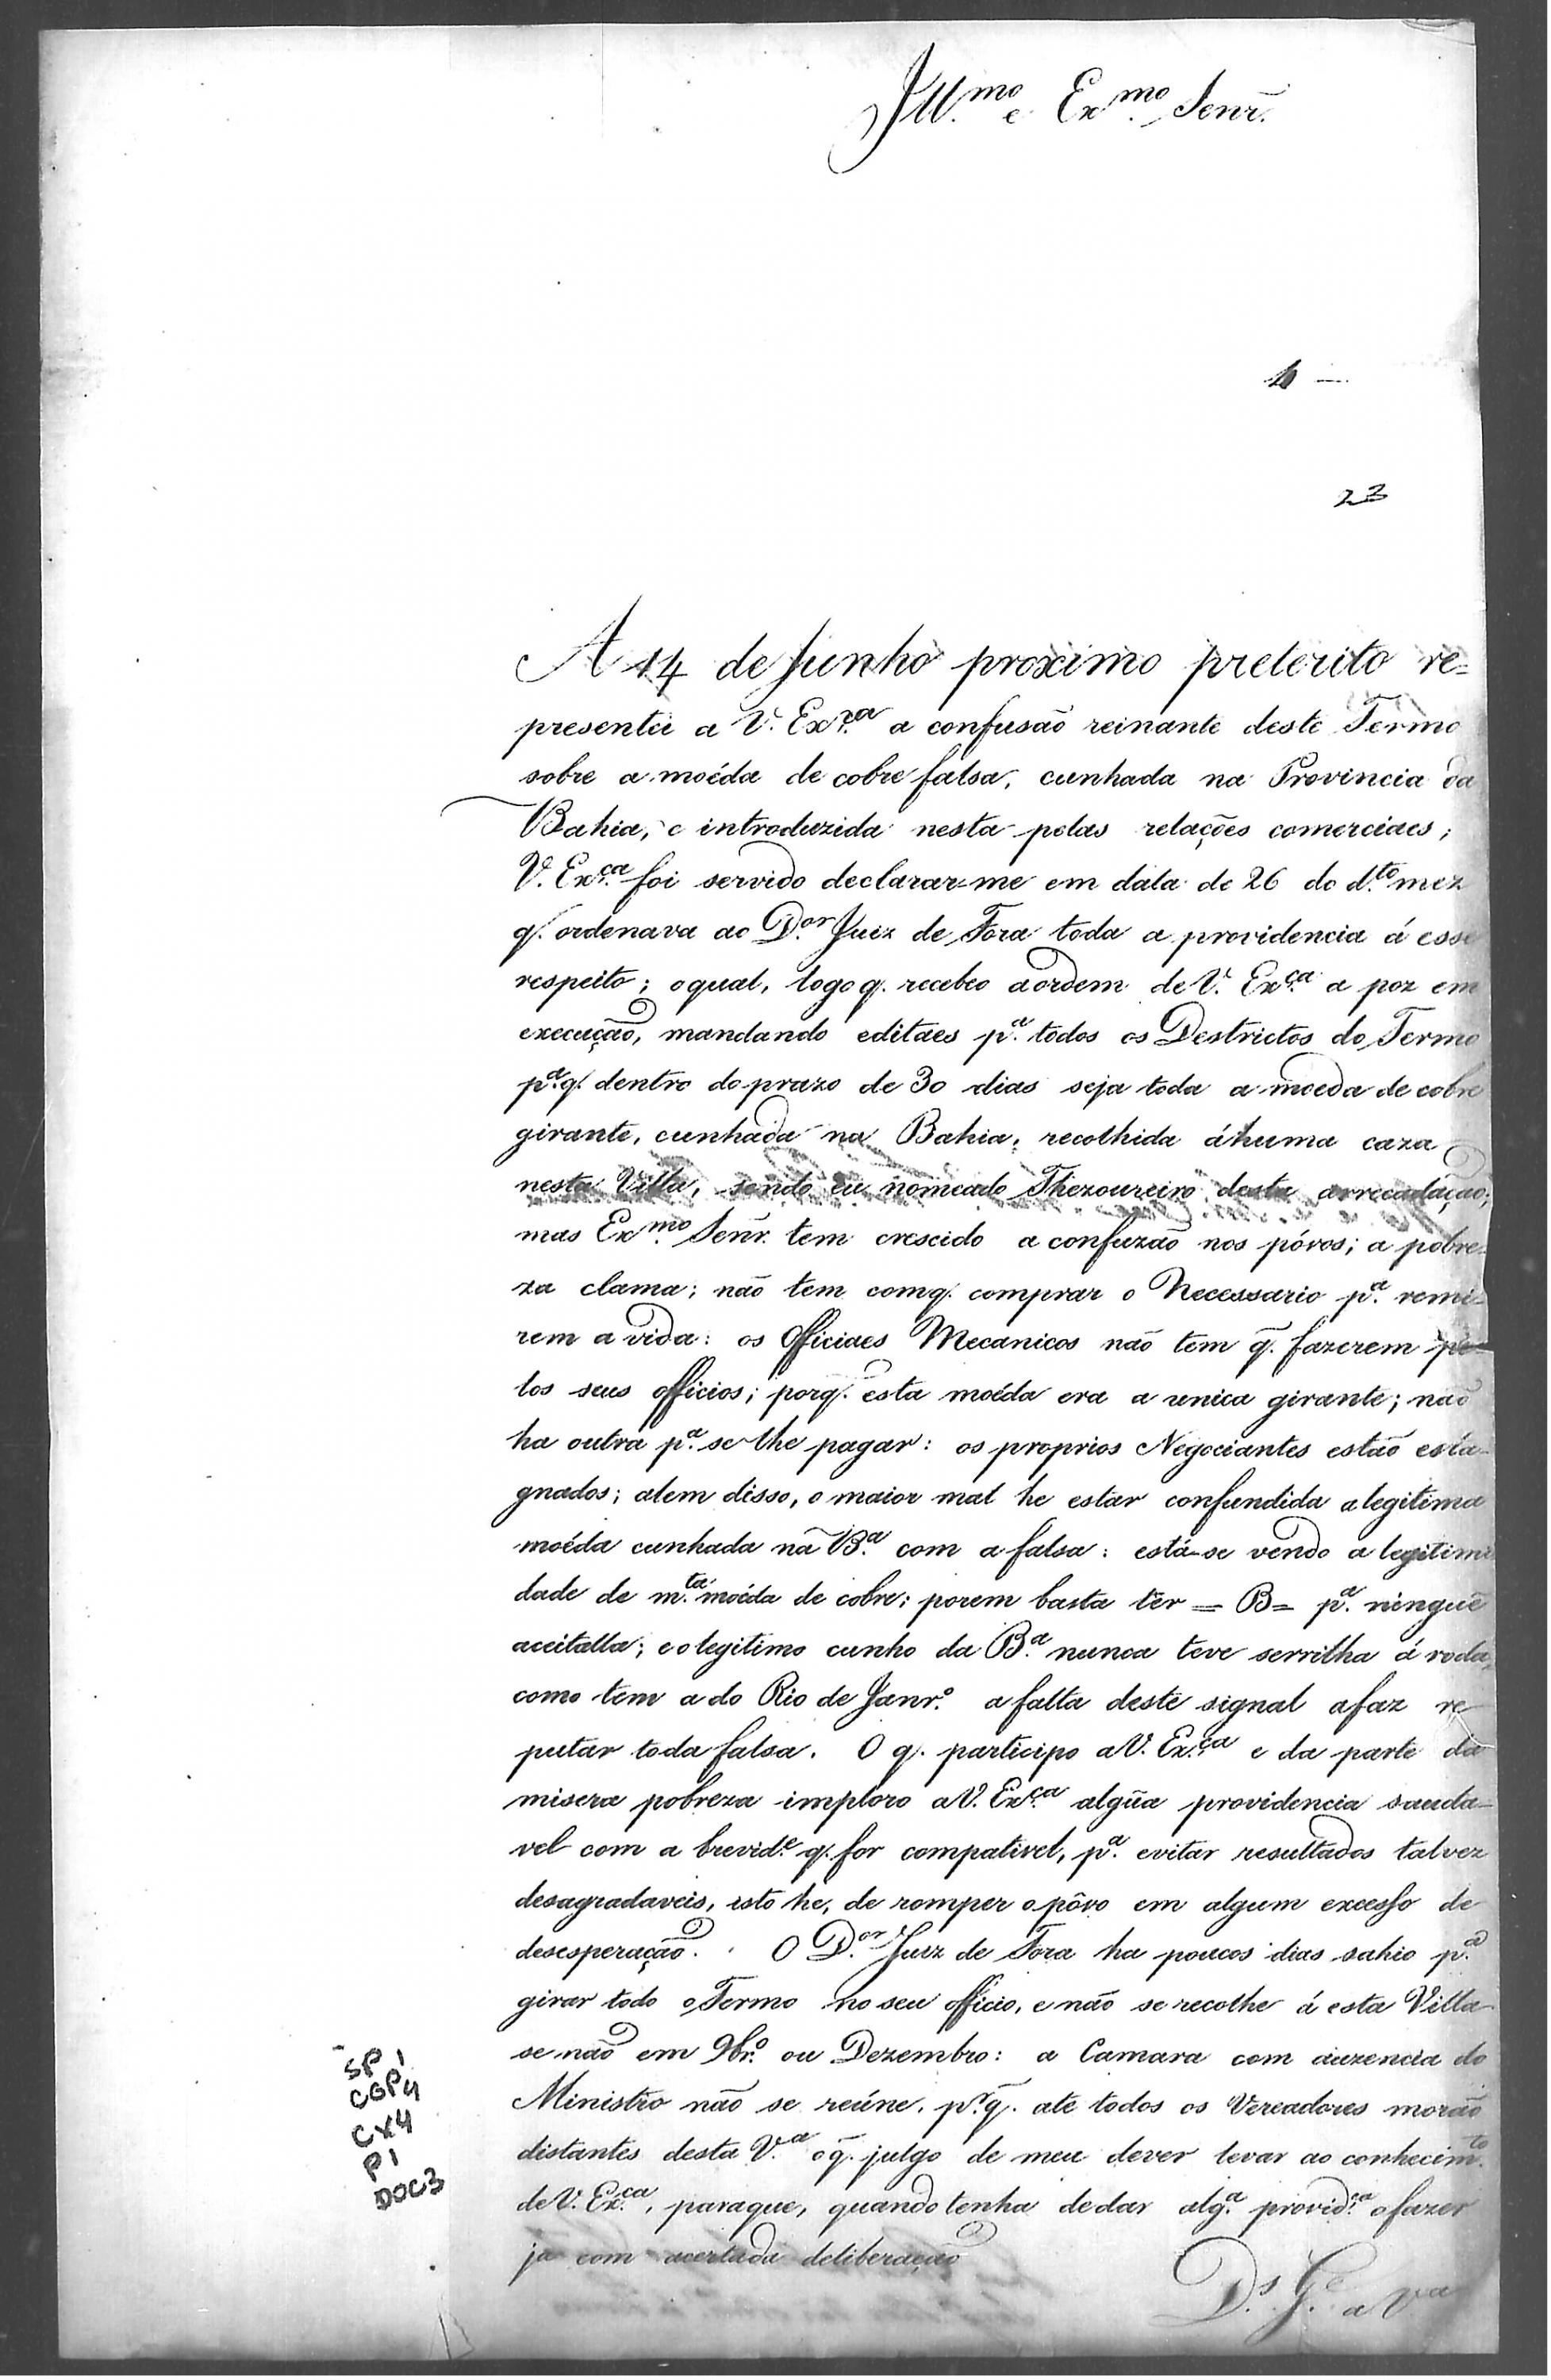 Ill.mo e Ex.mo Senr.
23
A 14 de Junho proximo preterito re=
presentei a V. Ex.ca a confusão reinante deste Termo
sobre a moéda de cobre falsa, cunhada na Provincia da
Bahia, e introduzida nesta pelas relações comerciaes;
V. Ex.ca foi servido declarar-me em data de 26 do d.to mez
q. ordenava ao D.or Juiz de Fora toda a providencia á esse
respeito; oqual, logo q. recebeo aordem de V. Ex.ca a poz em
execução, mandando editaes p.a todos os Destrictos do Termo
p.a q. dentro do prazo de 30 dias seja toda a moeda de cobre
girante, cunhada na Bahia, recolhida áhuma caza
nesta Villa, sendo eu nomeado Thezoureiro desta arrecadação;
mas Ex.mo Senr. tem crescido a confuzão nos póvos; a pobre-
za clama; não tem comq. comprar o Necessario p.a remi-
rem a vida: os Officiaes Mecanicos não tem q̃. fazerem pe-
los seus officios; porq. esta moéda era a unica girante; não
ha outra p.a se lhe pagar: os proprios Negociantes estão esta-
gnados; alem disso, o maior mal he estar confundida alegitima
moéda cunhada na B.a com a falsa: está-se vendo a legitimi
dade de m.ta moéda de cobre; porem basta ter = B = p.a ninguẽ
aceitalla; eolegitimo cunho da B.a nunca teve serrilha á roda,
como tem a do Rio de Janr.o a falta deste signal afaz re
putar toda falsa. O q. participo aV. Ex.ca e da parte da
misera pobreza imploro aV. Ex.ca algũa providencia sauda-
vel com a brevid.e q. for compativel, p.a evitar resultados talvez
desagradaveis, isto he, de romper opôvo em algum excesso de
desesperação. O D.or Juiz de Fora ha poucos dias sahio p.a
girar todo oTermo no seu officio, e não se recolhe á esta Villa
se não em 9br.o ou Dezembro: a Camara com auzencia do
Ministro não se reúne, p.r q̃. até todos os Vereadores morão
distantes desta V.a oq̃. julgo de meu dever levar ao conhecim.to
deV. Ex.ca, paraque, quando tenha dedar alg.a provid.ca ofazer
ja com acertada deliberação
D.s G.e a V.a
SP 1
CGP4
CX4
P1
DOC3